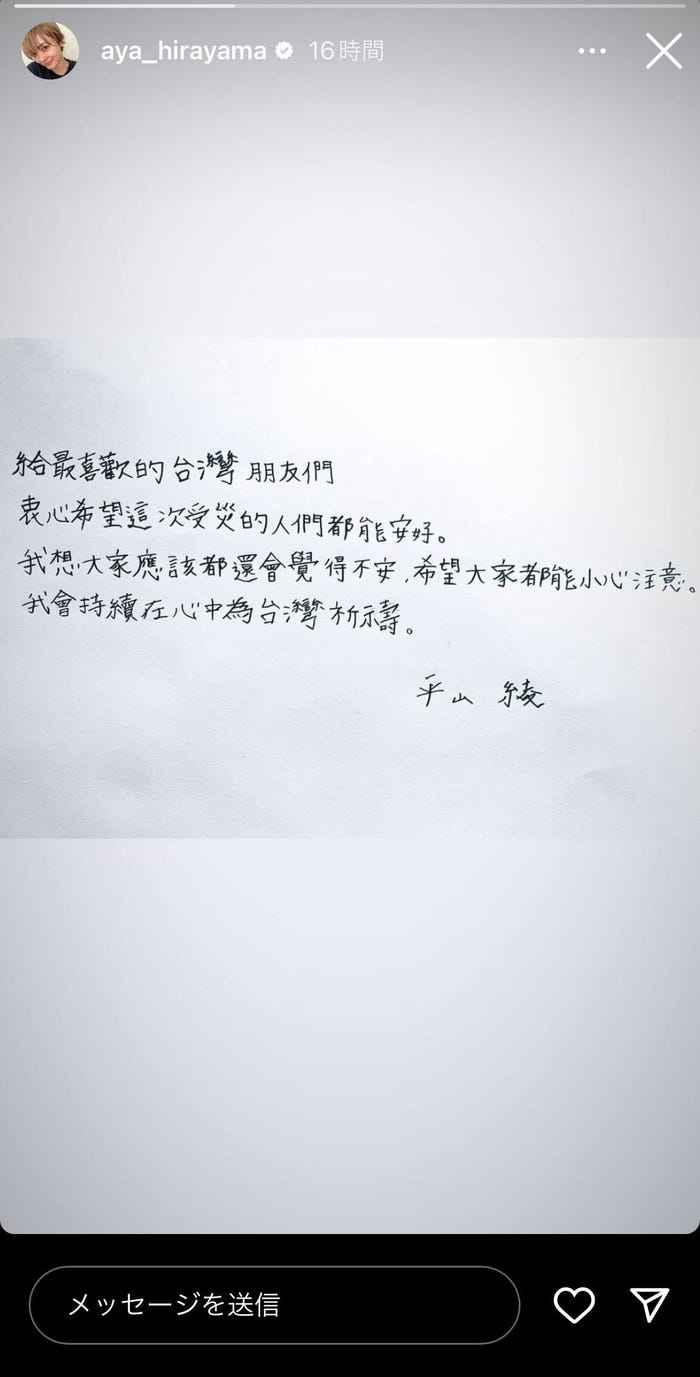 aya_hirayama 16時間
給最喜歡的台灣朋友們
衷心希望這次受災的人們都能安好。
我想大家應該都還會覺得不安,希望大家都能小心注意。
我會持續在心中為台灣祈禱。
平山 綾
メッセージを送信